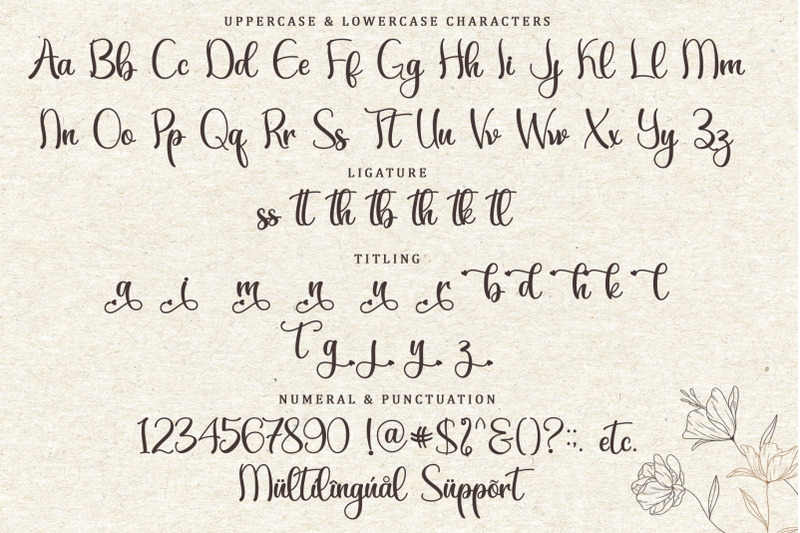 UPPERCASE & LOWERCASE CHARACTERS
Aa Bb Cc Dd Ee Ff Gg Hh Ii Jj Kk Ll Mm
Nn Oo Pp Qq Rr Ss Tt Uu Vv Ww Xx Yy Zz
LIGATURE
ss tt th tb th tk tl
TITLING
a i m n u r b d h k l
t g j y z
NUMERAL & PUNCTUATION
1234567890 !@#$%^&()?:;. etc.
Mültilîngúål Süppõrt